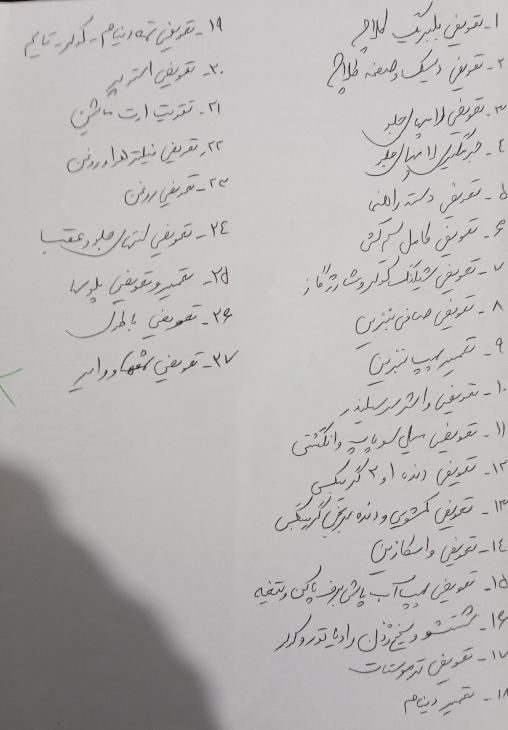 ۱- تعویض بلبرینگ کلاچ
۲- تعویض دیسک و صفحه کلاچ
۳- تعویض لامپهای جلو
۴- لامپهای جلو
۵- تعویض دسته راهنما
۶- تعویض کامل
۷- تعویض شیلنگ کولر و شارژ گاز
۸- تعویض صافی بنزین
۹- تعمیر پمپ بنزین
۱۰- تعویض واشر سرسیلندر
۱۱- تعویض سیل سوپاپ و انگشتی
۱۲- تعویض دنده ۱ و ۲ گیربکس
۱۳- تعویض کشویی و دنده برنجی گیربکس
۱۴- تعویض واسکازین
۱۵- تعویض پمپ آب پاش برف پاکن و تیغه
۱۶- شستشو و سیخ زدن رادیاتور و کولر
۱۷- تعویض ترموستات
۱۸- تعمیر دینام
۱۹- تعویض تسمه دینام - کولر - تایم
۲۰- تعویض استوپر
۲۱- تقویت ارت ماشین
۲۲- تعویض فیلتر هوا و روغن
۲۳- تعویض روغن
۲۴- تعویض لنتهای جلو و عقب
۲۵- تعمیر و تعویض پلوسها
۲۶- تعویض باطری
۲۷- تعویض شمعها و وایر